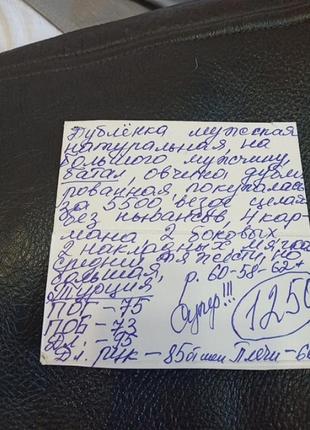 Дублёнка мужская
натуральная, на
большого мужчину,
батал, овчина, дубли
рованная, покупалась
за 5500 везде целая
без ньюансов 4 кар-
мана 2 боковых
2 накладных мягкая
средней тяжести, но
большая, р. 60-58-62+
Турция
ПОГ - 75
ПОБ - 73
Дл. - 95
Дл. рук - 85 от шеи Плечи - 60
Супер!!! 1250